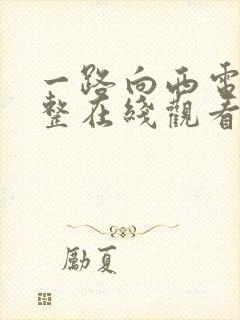 一路向西電
整在綫觀看
勵夏